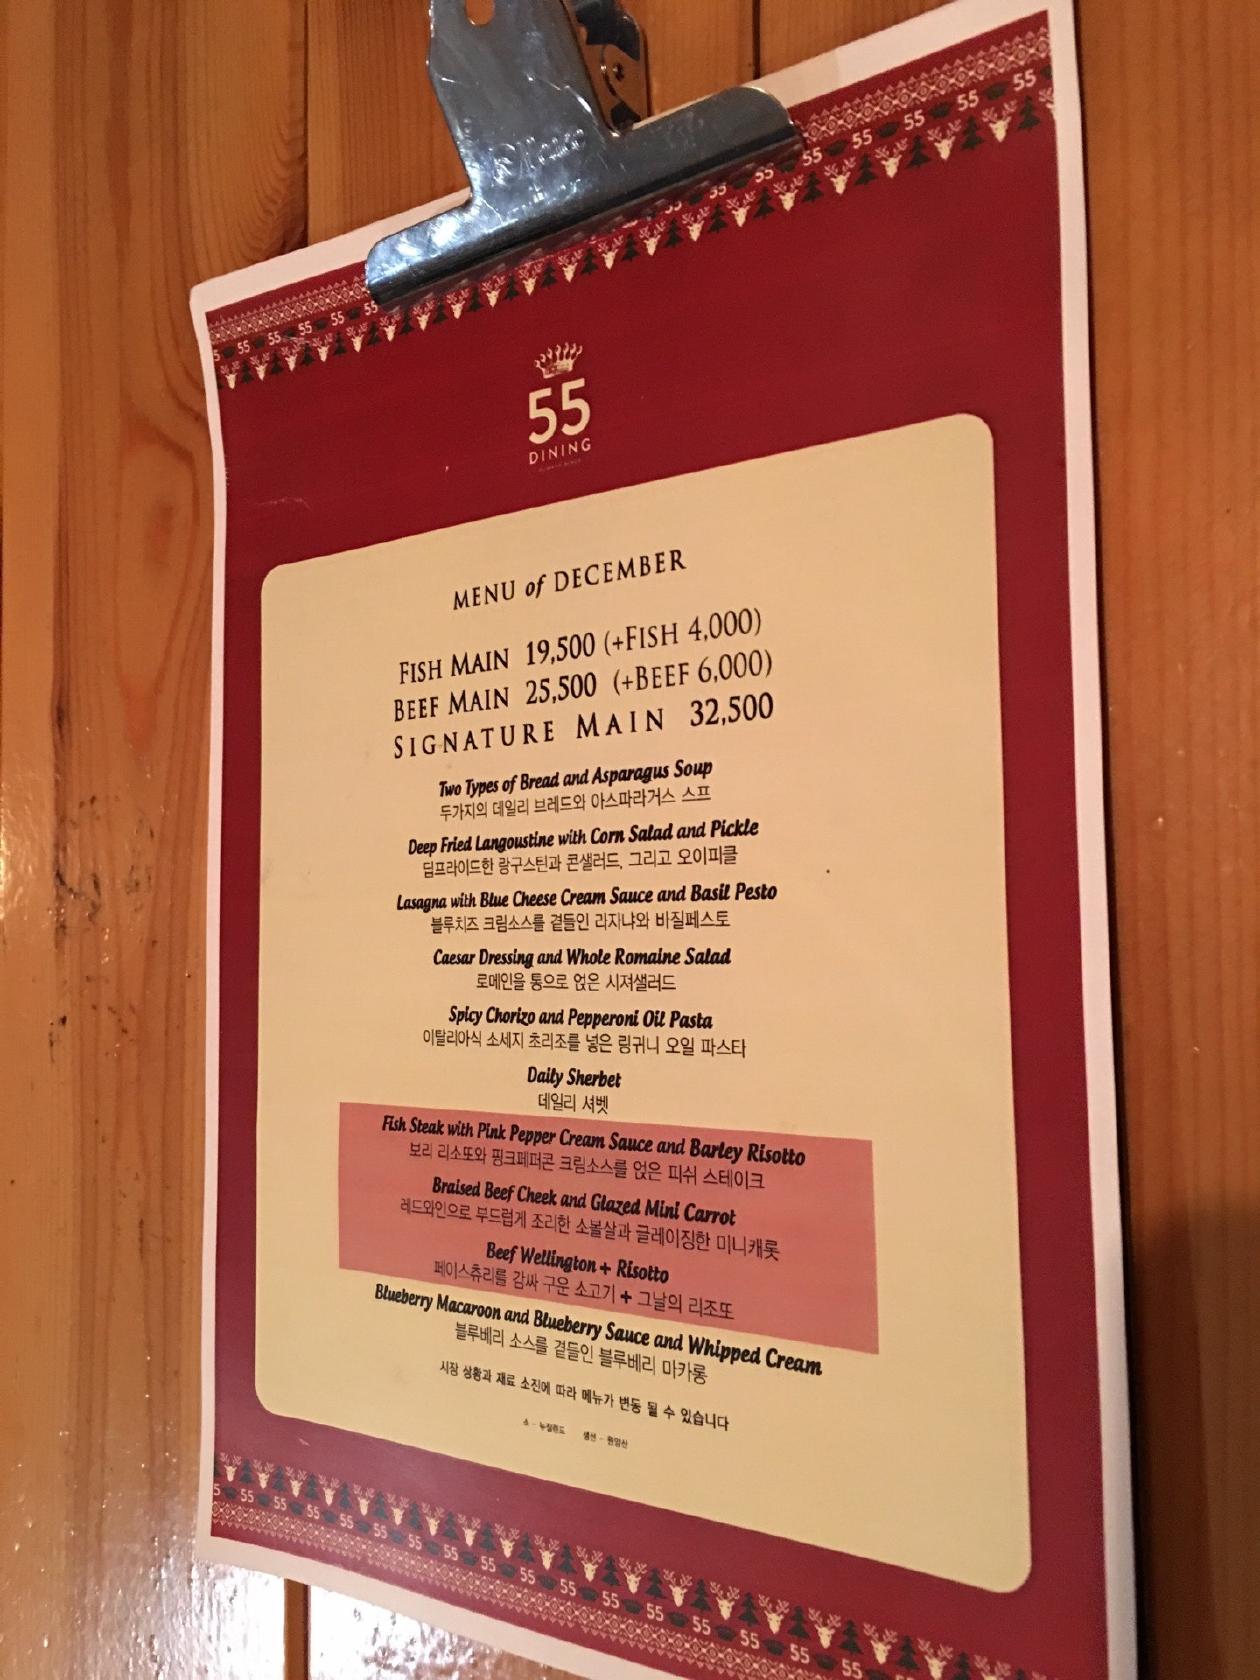 55
DINING
MENU of DECEMBER
FISH MAIN 19,500 (+FISH 4,000)
BEEF MAIN 25,500 (+BEEF 6,000)
SIGNATURE MAIN 32,500
Two Types of Bread and Asparagus Soup
두가지의 데일리 브레드와 아스파라거스 스프
Deep Fried Langoustine with Corn Salad and Pickle
딥프라이드한 랑구스틴과 콘샐러드, 그리고 오이피클
Lasagna with Blue Cheese Cream Sauce and Basil Pesto
블루치즈 크림소스를 곁들인 라자냐와 바질페스토
Caesar Dressing and Whole Romaine Salad
로메인을 통으로 얹은 시져샐러드
Spicy Chorizo and Pepperoni Oil Pasta
이탈리아식 소세지 초리조를 넣은 링귀니 오일 파스타
Daily Sherbet
데일리 셔벳
Fish Steak with Pink Pepper Cream Sauce and Barley Risotto
보리 리소또와 핑크페퍼콘 크림소스를 얹은 피쉬 스테이크
Braised Beef Cheek and Glazed Mini Carrot
레드와인으로 부드럽게 조리한 소볼살과 글레이징한 미니캐롯
Beef Wellington + Risotto
페이스츄리를 감싸 구운 소고기 + 그날의 리조또
Blueberry Macaroon and Blueberry Sauce and Whipped Cream
블루베리 소스를 곁들인 블루베리 마카롱
시장 상황과 재료 소진에 따라 메뉴가 변동 될 수 있습니다
소 - 뉴질랜드 생선 - 원양산